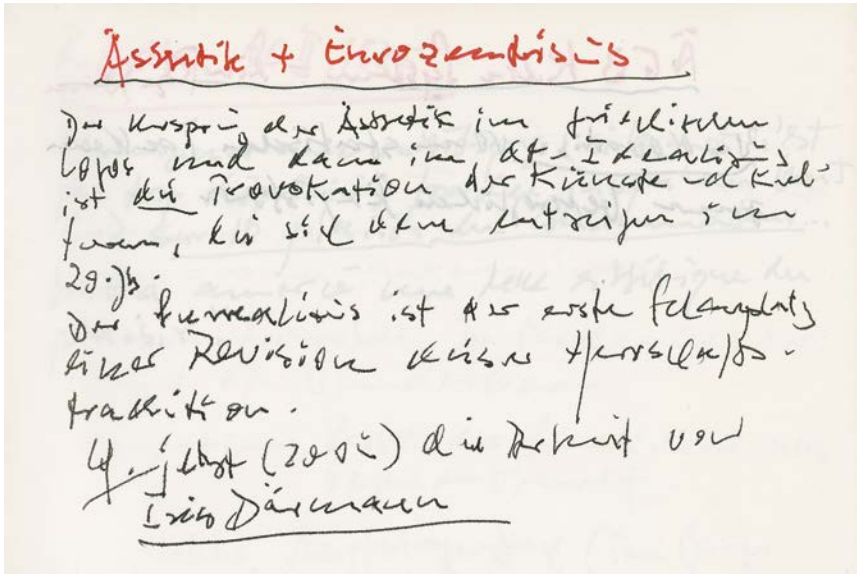 Ästhetik + Eurozentrismus
Der Ursprung der Ästhetik im griechischen
Logos und dann im dt. Idealismus
ist die Provokation der Künste und Kul-
turen, die sich dem entzogen im
20. Jh.
Der Surrealismus ist der erste
einer Revision dieser Herrschafts-
tradition.
Cf. jetzt (2005) die Arbeit von
Iris Därmann